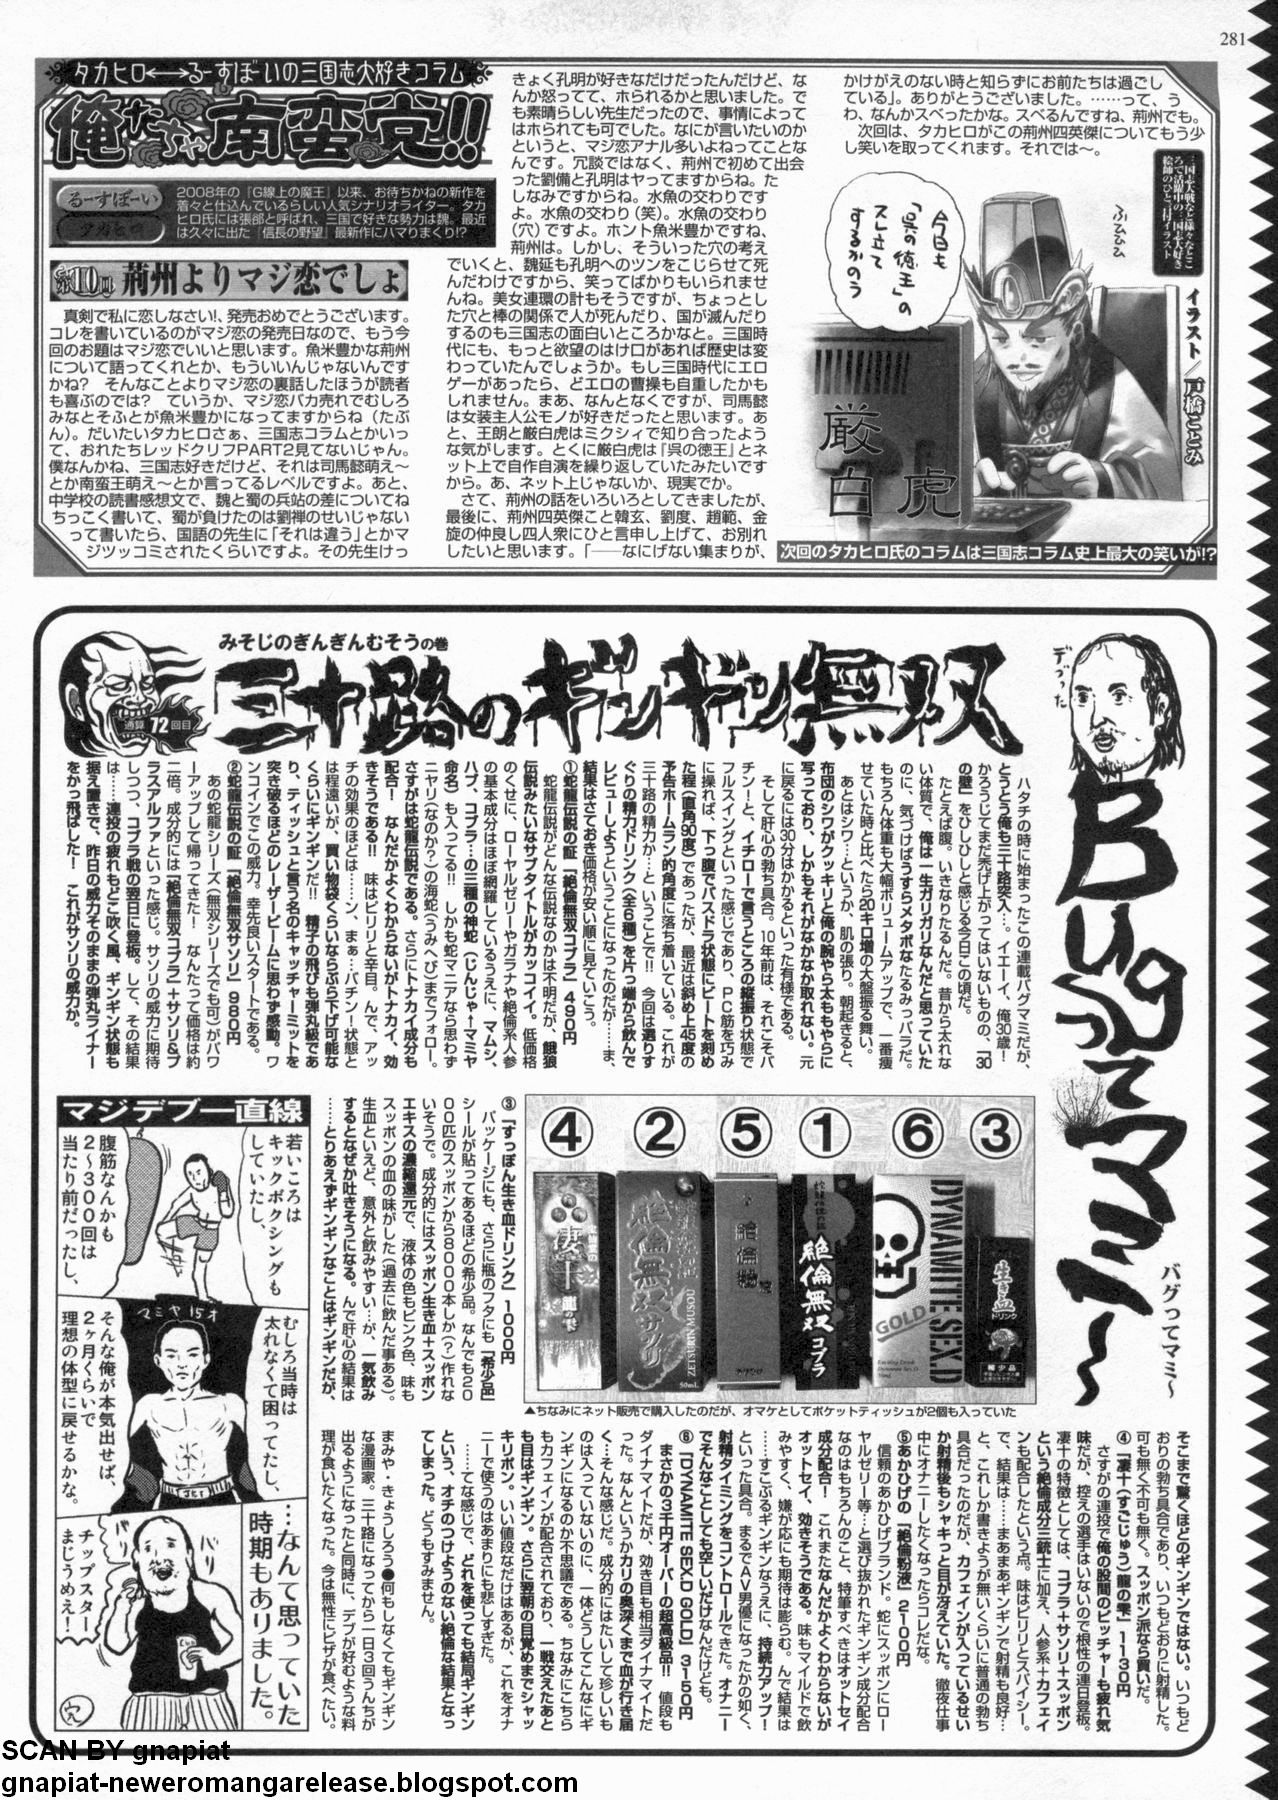 281
タカヒロ←→るーすぼーいの三国志大好きコラム
俺たちゃ南蛮党!!
るーすぼーい
タカヒロ
2008年の『G線上の魔王』以来、お待ちかねの新作を
着々と仕込んでいるらしい人気シナリオライター。タカ
ヒロ氏には張郃と呼ばれ、三国で好きな勢力は魏。最近
は久々に出た『信長の野望』最新作にハマりまくり!?
第10回 荊州よりマジ恋でしょ
真剣で私に恋しなさい!、発売おめでとうございます。
コレを書いているのがマジ恋の発売日なので、もう今
回のお題はマジ恋でいいと思います。魚米豊かな荊州
について語ってくれとか、もういいんじゃないんです
かね? そんなことよりマジ恋の裏話したほうが読者
も喜ぶのでは? ていうか、マジ恋バカ売れでむしろ
みなとそふとが魚米豊かになってますからね(たぶ
ん)。だいたいタカヒロさぁ、三国志コラムとかいっ
て、おれたちレッドクリフPART2見てないじゃん。
僕なんかね、三国志好きだけど、それは司馬懿萌え〜
とか南蛮王萌え〜とか言ってるレベルですよ。あと、
中学校の読書感想文で、魏と蜀の兵站の差についてね
ちっこく書いて、蜀が負けたのは劉禅のせいじゃない
って書いたら、国語の先生に「それは違う」とかマ
ジツッコミされたくらいですよ。その先生けっ
きょく孔明が好きなだけだったんだけど、な
んか怒ってて、ホられるかと思いました。で
も素晴らしい先生だったので、事情によって
はホられても可でした。なにが言いたいのか
というと、マジ恋アナル多いよねってことな
んです。冗談ではなく、荊州で初めて出会
った劉備と孔明はヤってますからね。た
しなみですからね。水魚の交わりです
よ。水魚の交わり(笑)。水魚の交わり
(穴)ですよ。ホント魚米豊かですね、
荊州は。しかし、そういった穴の考え
でいくと、魏延も孔明へのツンをこじらせて死
んだわけですから、笑ってばかりもいられませ
んね。美女連環の計もそうですが、ちょっとし
た穴と棒の関係で人が死んだり、国が滅んだり
するのも三国志の面白いところかなと。三国時
代にも、もっと欲望のはけ口があれば歴史は変
わっていたんでしょうか。もし三国時代にエロ
ゲーがあったら、どエロの曹操も自重したかも
しれません。まあ、なんとなくですが、司馬懿
は女装主人公モノが好きだったと思います。あ
と、王朗と厳白虎はミクシィで知り合ったよう
な気がします。とくに厳白虎は『呉の徳王』とネ
ット上で自作自演を繰り返していたみたいです
から。あ、ネット上じゃないか、現実でか。
さて、荊州の話をいろいろとしてきましたが、
最後に、荊州四英傑こと韓玄、劉度、趙範、金
旋の仲良し四人衆にひと言申し上げて、お別れ
したいと思います。「――なにげない集まりが、
かけがえのない時と知らずにお前たちは過ごし
ている」。ありがとうございました。……って、う
わ、なんかスベったかな。スベるんですね、荊州でも。
次回は、タカヒロがこの荊州四英傑についてもう少
し笑いを取ってくれます。それでは〜。
三国志大戦など様々なところで活躍中の三国志大好き絵師のひと、戸付イラスト
ふひひひ
今日も
「呉の徳王」の
スレ立て
するかのう
イラスト/戸橋ことみ
厳白虎
次回のタカヒロ氏のコラムは三国志コラム史上最大の笑いが!?
通算72回目
みそじのぎんぎんむそうの巻
三十路のギンギン無双
デブった
Bugってマミ〜
バグってマミ〜
ハタチの時に始まったこの連載バグマミだが、
とうとう俺も三十路突入…。イエーイ、俺30歳!
かろうじてまだ禿げ上がってはいないものの、「30
の壁」をひしひしと感じる今日この頃だ。
たとえば腹。いきなりたるんだ。昔から太れな
い体質で、俺は一生ガリガリなんだと思っていた
のに、気づけばうすらメタボなたるみっバラだ。
もちろん体重も大幅ボリュームアップで、一番痩
せていた時と比べたら20キロ増の大盤振る舞い。
あとはシワ…というか、肌の張り。朝起きると、
布団のシワがクッキリと俺の腕やら太ももやらに
写っており、しかもそれがなかなか取れない。元
に戻るには30分はかかるといった有様である。
そして肝心の勃ち具合。10年前は、それこそバ
チン!と、イチローで言うところの縦振り状態で
フルスイングといった感じであり、PC筋を巧み
に操れば、下っ腹でバスドラ状態にビートを刻め
た程(直角90度)であったが、最近は斜め上45度の
予告ホームラン的角度に落ち着いている。これが
三十路の精力か…ということで!! 今回は選りす
ぐりの精力ドリンク(全6種)を片っ端から飲んで
レビューしようということになったのだが……ま、
結果はさておき価格が安い順に見ていこう。
①蛇龍伝説の証「絶倫無双コブラ」490円
蛇龍伝説がどんな伝説なのかは不明だが、餓狼
伝説みたいなサブタイトルがカッコイイ。低価格
のくせに、ローヤルゼリーやガラナや絶倫系人参
の基本成分はほぼ網羅しているうえに、マムシ、
ハブ、コブラ…の三種の神蛇(じんじゃ↑マミヤ
命名)も入ってる!! しかも蛇マニアなら思わず
ニヤリ(なのか?)の海蛇(うみへび)までフォロー。
さすがは蛇龍伝説である。さらにトナカイ成分も
配合! なんだかよくわからないがトナカイ、効
きそうである!! 味はピリリと辛目。んで、アッ
チの効果のほどは……ン、まぁ…バチンー状態と
は程遠いが、買い物袋くらいならぶら下げ可能な
くらいにギンギンだ!! 精子の飛びも弾丸級であ
り、ティッシュと言う名のキャッチャーミットを
突き破るほどのレーザービームに思わず感動。ワ
ンコインでこの威力。幸先良いスタートである。
②蛇龍伝説の証「絶倫無双サソリ」980円
あの蛇龍シリーズ(無双シリーズでも可)がパワ
ーアップして帰ってきた! なんたって価格は約
二倍。成分的には「絶倫無双コブラ」+サソリ&プ
ラスアルファといった感じ。サソリの威力に期待
しつつ、コブラ戦の翌日に登板。して、その結果
は……連投の疲れもどこ吹く風。ギンギン状態も
据え置きで、昨日の威力そのままの弾丸ライナー
をかっ飛ばした! これがサソリの威力か。
④ ② ⑤ ① ⑥ ③
凄十
龍の雫
絶倫無双サソリ
ZETSURIN MUSOU
50mL
絶倫無双コブラ
DYNAMITE SEX.D
GOLD
生き血
ドリンク
希少品
▲ちなみにネット販売で購入したのだが、オマケとしてポケットティッシュが2個も入っていた
③「すっぽん生き血ドリンク」1000円
パッケージにも、さらに瓶のフタにも「希少品」
シールが貼ってあるほどの希少品。なんでも20
00匹のスッポンから8000本しか(?)作れな
いそうで。成分的にはスッポン生き血+スッポン
エキスの濃縮還元で、液体の色もピンク色、味も
スッポンの血の味がした(過去に飲んだ事ある)。
生血といえど、意外と飲みやすい…が、一気飲み
するとなぜか吐きそうになる。んで肝心の結果は
……とりあえずギンギンなことはギンギンだが、
そこまで驚くほどのギンギンではない。いつもど
おりの勃ち具合であり、いつもどおりに射精した。
可も無く不可も無く。スッポン派なら買いだ。
④「凄十(すごじゅう)龍の雫」1130円
さすがの連投で俺の股間のピッチャーも疲れ気
味だが、控えの選手はいないので根性の連日登板。
凄十の特徴としては、コブラ+サソリ+スッポン
という絶倫成分三銃士に加え、人参系+カフェイ
ンも配合したという点。味はピリリとスパイシー。
で、結果は……まあまあギンギンで射精も良好…
と、これしか書きようが無いくらいに普通の勃ち
具合だったのだが、カフェインが入っているせい
か射精後もシャキっと目が冴えていた。徹夜仕事
中にオナニーしたくなったらコレだな。
⑤あかひげの「絶倫粉液」2100円
信頼のあかひげブランド。蛇にスッポンにロー
ヤルゼリー等…と選び抜かれたギンギン成分配合
なのはもちろんのこと、特筆すべきはオットセイ
成分配合! これまたなんだかよくわからないが
オットセイ、効きそうである。味もマイルドで飲
みやすく、嫌が応にも期待は膨らむ。んで結果は
……すこぶるギンギンなうえに、持続力アップ!
といった具合。まるでAV男優になったかの如く、
射精タイミングをコントロールできた。オナニー
でそんなことしても空しいだけなんだけども。
⑥「DYNAMITE SEX.D GOLD」3150円
まさかの3千円オーバーの超高級品!! 値段も
ダイナマイトだが、効き目も相当ダイナマイトだ
った。なんというかカリの奥深くまで血が行き届
く…そんな感じだ。成分的にはたいして珍しいも
のは入ってないのに、一体どうしてこんなにギ
ンギンになるのか不思議である。ちなみにこちら
もカフェインが配合されており、一戦交えたあと
も目はギンギン。さらに翌朝の目覚めまでシャッ
キリポン。いい値段なだけはあるが、これをオナ
ニーで使うのはあまりにも悲しすぎた。
……てな感じで、どれを使っても結局ギンギン
という、オチのつけようのない絶倫な結果となっ
てしまった。どうもすみません。
まみや・きょうしろう●何もしなくてもギンギン
な漫画家。三十路になってから一日3回うんちが
出るようになったと同時に、デブが好むような料
理が食いたくなった。今は無性にピザが食べたい。
マジデブ一直線
若いころは
キックボクシングも
していたし、
腹筋なんかも
2〜300回は
当たり前だったし、
マミヤ15才
むしろ当時は
太れなくて困ってたし、
そんな俺が本気出せば、
2ヶ月くらいで
理想の体型に戻せるかな。
…なんて思っていた
時期もありました。
バリ
バリ
チップスター
まじうめえ!
SCAN BY gnapiat
gnapiat-neweromangarelease.blogspot.com